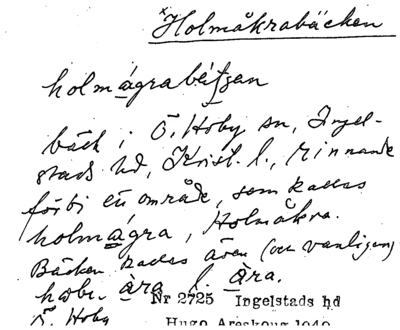 ×Holmåkrabäcken
holmágrabétʃan
bäck i Ö. Hoby sn, Ingel-
stads hd, Krist. l., rinnande
förbi ett område, som kallas
holmágra, Holmåkra.
Bäcken kallas även (och vanligen)
àra l. àra.
Nr 2725 Ingelstads hd
Ö. Hoby
Hugo Areskoug 1949